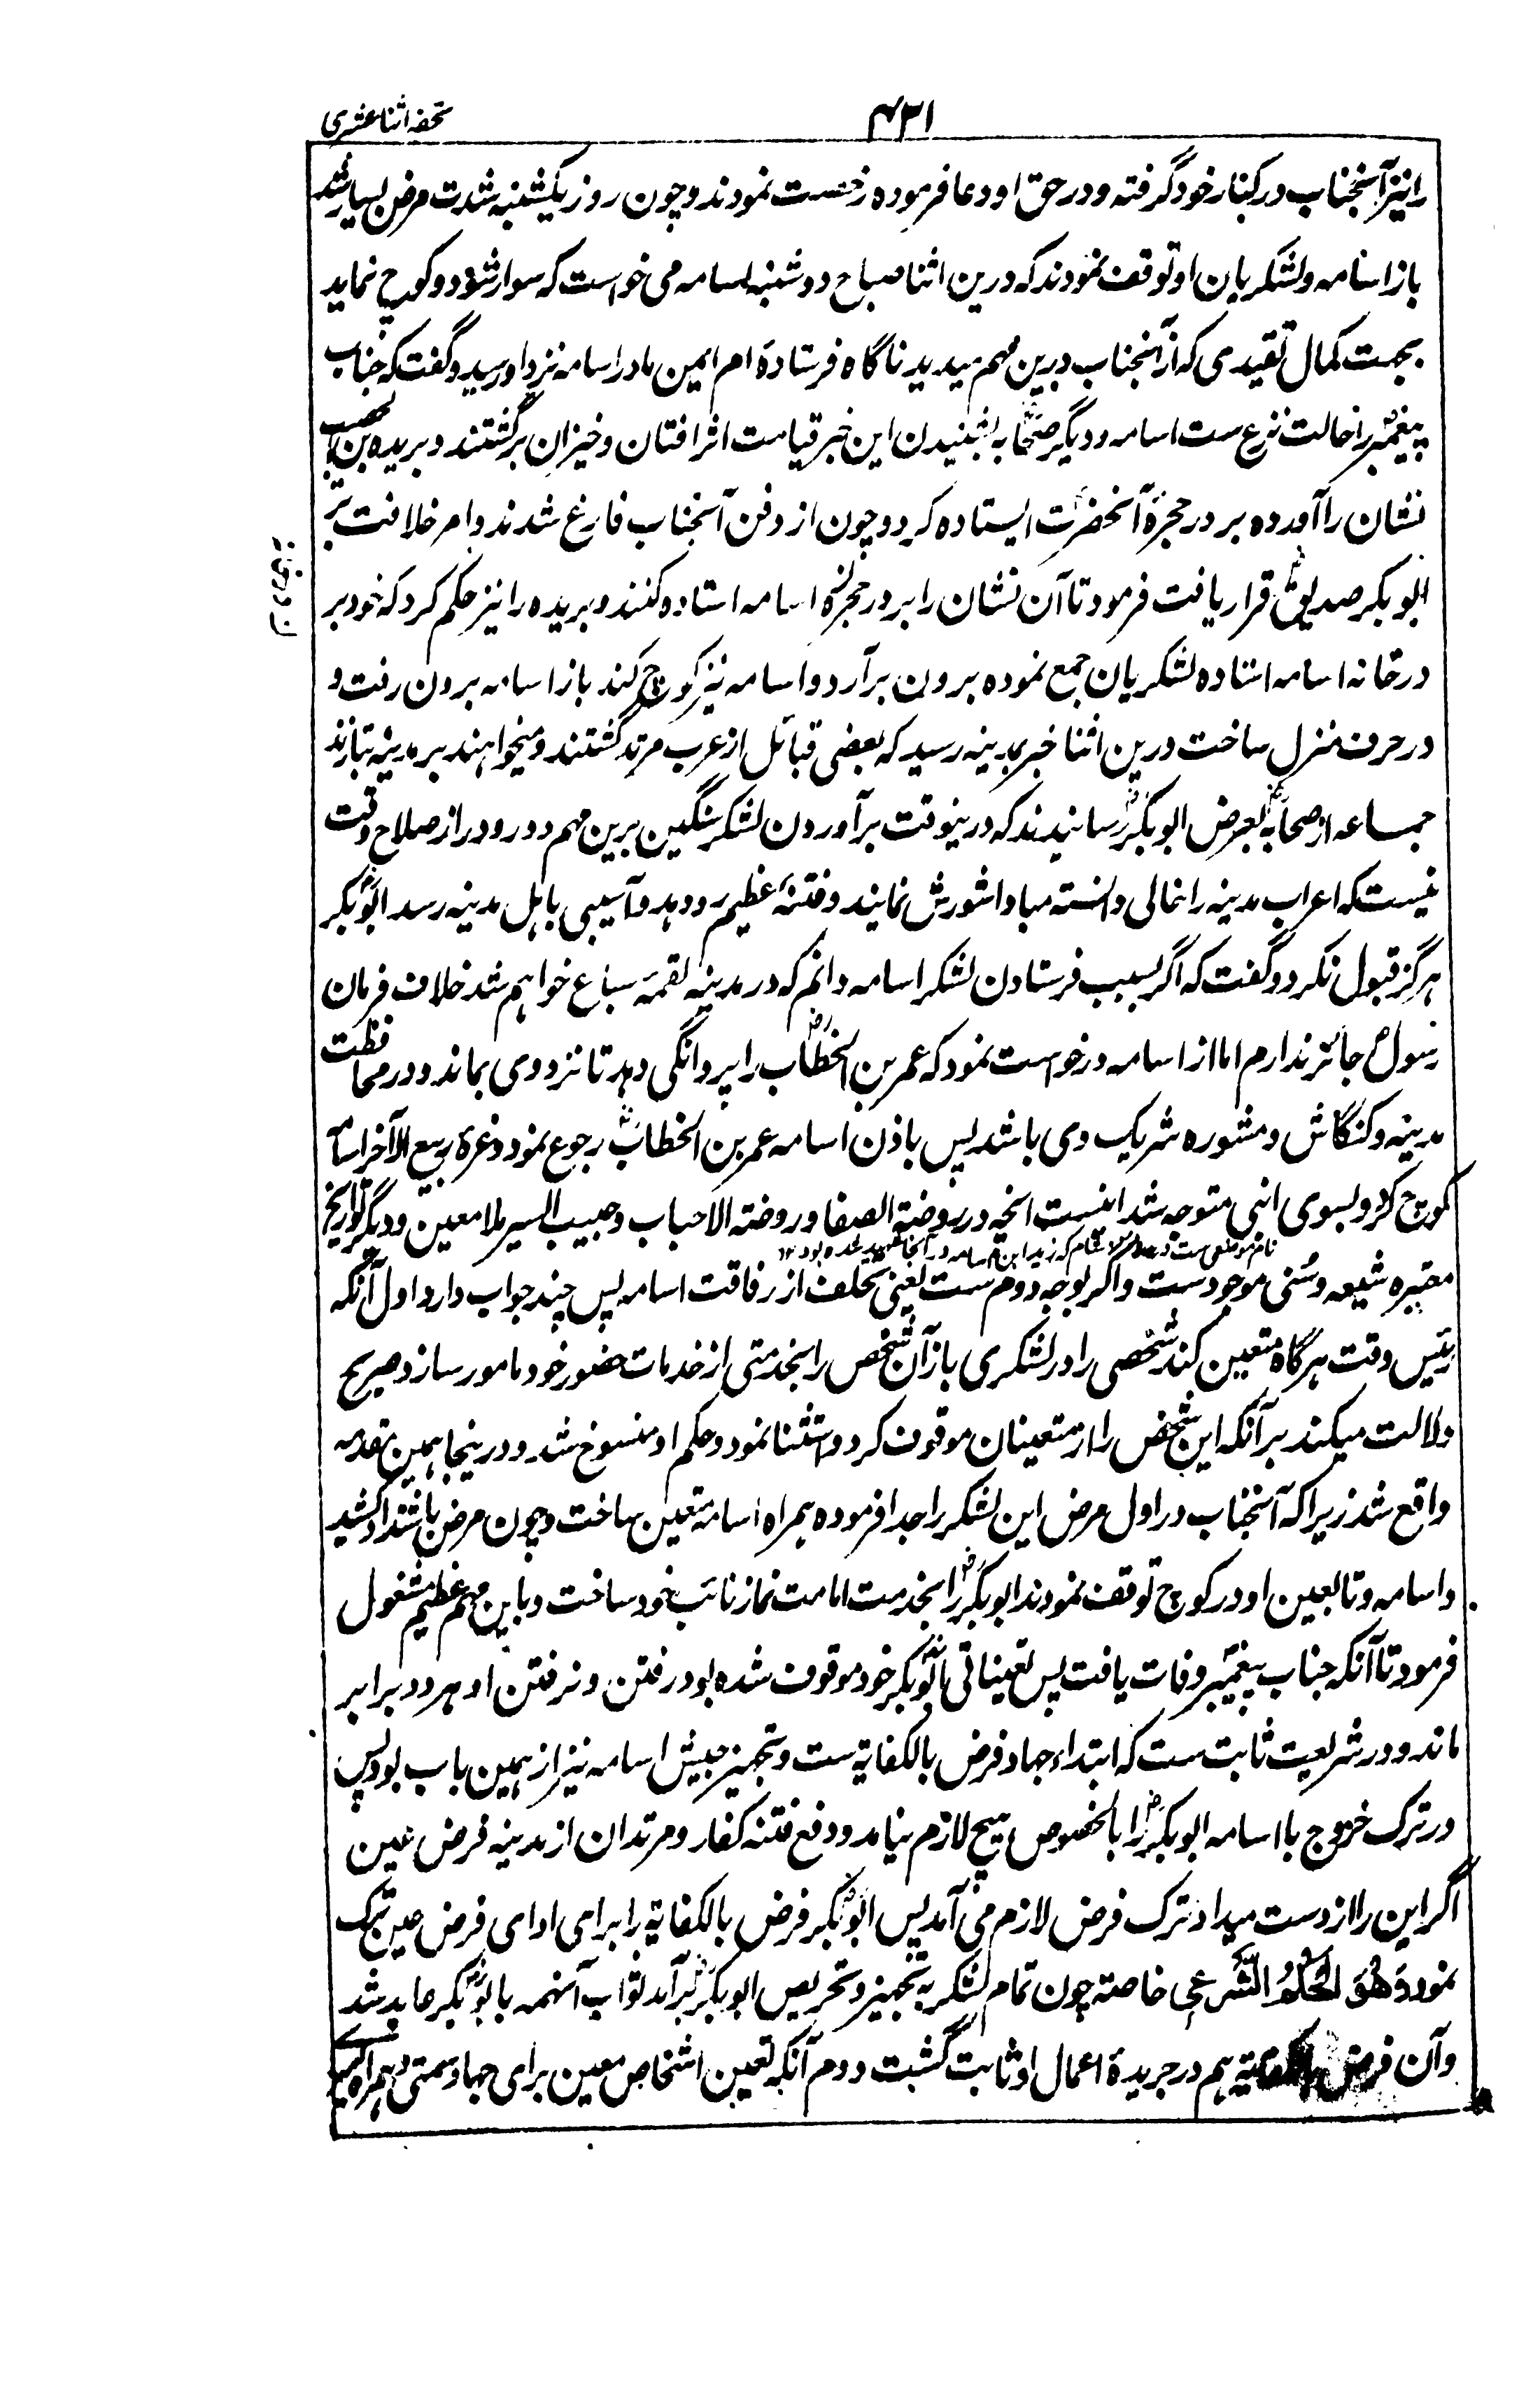 تحفه اثنا عشری
۴۳۱
را نیز آنجناب در کنار خود گرفته و در حق او دعا فرموده رخصت نمودند و چون روز یکشنبه شدت مرض بسیار شد
باز اسامه و لشکریان او توقف نمودند که درین اثنا صباح دوشنبه اسامه می خواست که سوار شود و کوچ نماید
بجهت کمال تقیدی که از آنجناب درین مهم میدید ناگاه فرستادهٔ ام ایمن مادر اسامه نزد او رسید و گفت که جناب
پیغمبرؐ را حالت نزع ست اسامه و دیگر صحابهؓ بشنیدن این خبر قیامت اثر افتان و خیزان برگشتند و بریده بن الحصیب
نشان را آورده بر در حجرهٔ آنحضرتؐ ایستاده کرد و چون از دفن آنجناب فارغ شدند و امر خلافت بر
ابوبکر صدیقؓ قرار یافت فرمود تا آن نشان را بر در حجرهٔ اسامه استاده کنند و بریده را نیز حکم کرد که خود بر
در خانه اسامه استاده لشکریان جمع نموده برون برآرد و اسامه نیز کوچ کند باز اسامه برون رفت و
در جرف منزل ساخت درین اثنا خبر بمدینه رسید که بعضی قبائل از عرب مرتد گشتند و میخواهند بر مدینه بتازند
جماعه از صحابهؓ بعرض ابوبکرؓ رسانیدند که درینوقت برآوردن لشکر سنگین برین مهم دور و دراز صلاح وقت
نیست که اعراب مدینه را خالی دانسته مبادا شورش نمایند و فتنهٔ عظیم رو دهد و آسیبی باهل مدینه رسد ابوبکرؓ
هرگز قبول نکرد و گفت که اگر بسبب فرستادن لشکر اسامه دانم که در مدینه لقمهٔ سباع خواهم شد خلاف فرمان
رسولؐ جائز ندارم اما از اسامه درخواست نمود که عمر بن الخطابؓ را پروانگی دهد تا نزد وی بماند و در محافظت
مدینه و کنگاش و مشوره شریک وی باشد پس باذن اسامه عمر بن الخطابؓ رجوع نمود و غرهٔ ربیع الآخر اسامه
کوچ کرد و بسوی ابنی متوجه شد اینست انچه در روضة الصفا و روضة الاحباب و حبیب السیر ملا معین و دیگر تواریخ
نام موضعی ست در شام که زید ابن اسامه در آنجا شهید شده بود ۱۲
معتبره شیعه و سنی موجود ست و اگر بوجه دوم ست یعنی تخلف از رفاقت اسامه پس چند جواب دارد اول آنکه
رئیس وقت هرگاه متعین کند شخصی را در لشکری باز آن شخص را بخدمتی از خدمات حضور خود مامور سازد صریح
دلالت میکند بر آنکه این شخص را از متعینان موقوف کرد و استثنا نمود و حکم او منسوخ شد و درینجا همین مقدمه
واقع شد زیرا که آنجناب در اول مرض این لشکر را جدا فرموده همراه اسامه متعین ساخت و چون مرض باشتداد کشید
و اسامه و تابعین او در کوچ توقف نمودند ابوبکرؓ را بخدمت امامت نماز نائب خود ساخت و باین مهم عظیم مشغول
فرمود تا آنکه جناب پیغمبرؐ وفات یافت پس تعیناتی ابوبکرؓ خود موقوف شده بود رفتن و نرفتن او هر دو برابر
ماند و در شریعت ثابت ست که ابتداء جهاد فرض بالکفایة ست و تجهیز جیش اسامه نیز از همین باب بود پس
در ترک خروج با اسامه ابوبکرؓ را بالخصوص هیچ لازم نیامد و دفع فتنه کفار و مرتدان از مدینه فرض عین
اگر این را از دست میداد ترک فرض لازم می آمد پس ابوبکرؓ فرض بالکفایة را برای ادای فرض عین ترک
نمود وَهُوَ الحُكْمُ الشَّرعی خاصته چون تمام لشکر به تجهیز و تحریص ابوبکرؓ برآمد ثواب آنهمه بابوبکرؓ عاید شد
و آن فرض بالکفایة هم در جریدهٔ اعمال او ثابت گشت دوم آنکه تعین اشخاص معین برای جهاد سمتی و همراه